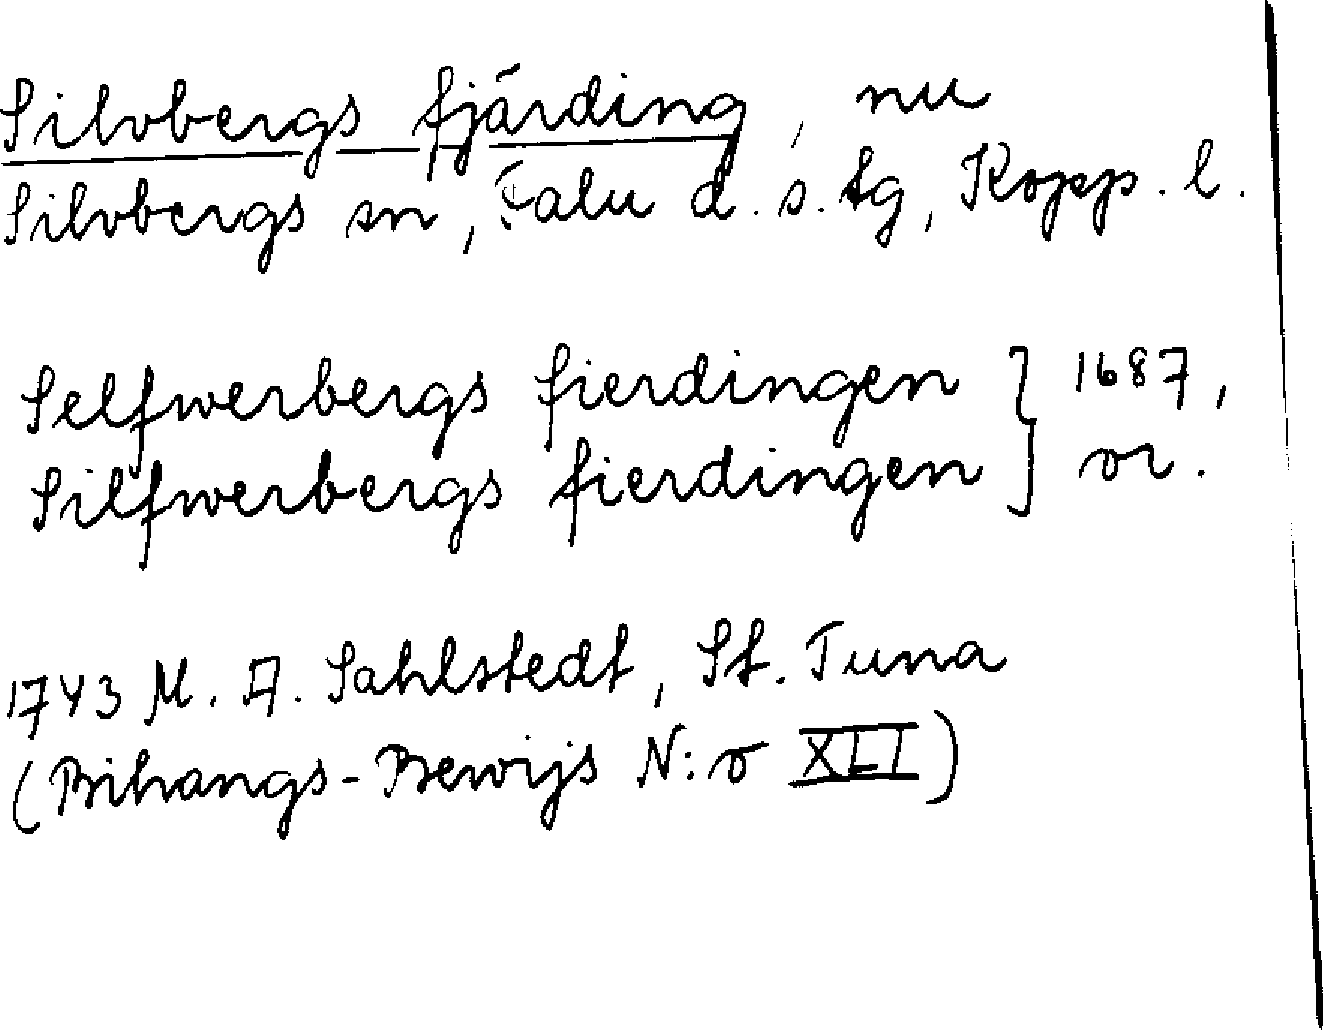 Silvbergs fjärding, nu
Silvbergs sn, Falu d. s. tg, Kopp. l.
Selfwerbergs fierdingen } 1687,
Silfwerbergs fierdingen } or.
1743 M. A. Sahlstedt, St. Tuna
(Bihangs-Bewijs N:o XLI)